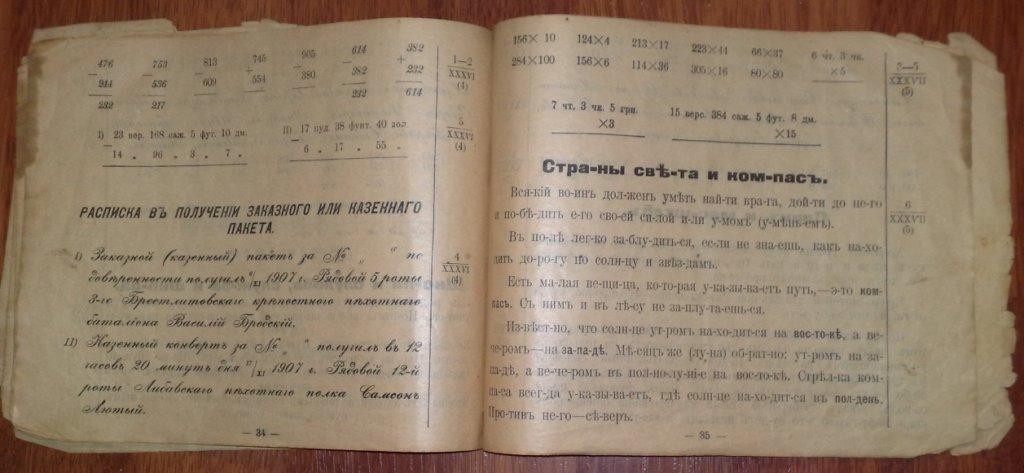 476 753 813 745 905 614 382
944 536 609 554 390 382 232
232 217 232 614
1—2
XXXVI
(4)
I) 23 вер. 168 саж. 5 фут. 10 дм.
14 „ 96 „ 3 „ 7 „
II) 17 пуд. 38 фунт. 40 зол.
6 „ 17 „ 55 „
3
XXXVI
(4)
РАСПИСКА ВЪ ПОЛУЧЕНІИ ЗАКАЗНОГО ИЛИ КАЗЕННАГО
ПАКЕТА.
I) Заказной (казенный) пакетъ за № „ “ по
довѣренности получилъ /XI 1907 г. Рядовой 5 роты
3-го Брестлитовскаго крѣпостного пѣхотнаго
баталіона Василій Бродскій.
II) Казенный конвертъ за № „ “ получилъ въ 12
часовъ 20 минутъ дня /XI 1907 г. Рядовой 12-й
роты Либавскаго пѣхотнаго полка Самсонъ
Лютый.
4
XXXVI
(4)
— 34 —
156×10 124×4 213×17 223×44 66×37 6 чт. 3 чк.
284×100 156×6 114×36 305×16 80×80 ×5
2—5
XXXVII
(5)
7 чт. 3 чк. 5 грн.
×3
15 верс. 384 саж. 5 фут. 8 дм.
×15
Стра-ны свѣ-та и ком-пасъ.
Вся-кій во-инъ дол-женъ умѣть най-ти вра-га, дой-ти до не-го
и по-бѣ-дить е-го сво-ей си-лой и-ли у-момъ (у-мѣнь-емъ).
6
XXXVII
(5)
Въ по-лѣ лег-ко за-блу-дить-ся, ес-ли не зна-ешь, какъ на-хо-
дить до-ро-гу по солн-цу и звѣз-дамъ.
Есть ма-лая ве-щи-ца, ко-то-рая у-ка-зы-ва-етъ путь,—э-то ком-
пасъ. Съ нимъ и въ лѣ-су не за-плу-та-ешь-ся.
Из-вѣст-но, что солн-це ут-ромъ на-хо-дит-ся на вос-то-кѣ, а ве-
че-ромъ—на за-па-дѣ. Мѣ-сяцъ же (лу-на) об-рат-но: ут-ромъ на за-
па-дѣ, а ве-че-ромъ въ пол-но-лу-ні-е на вос-то-кѣ. Стрѣл-ка ком-
па-са всег-да у-ка-зы-ва-етъ, гдѣ солн-це на-хо-дит-ся въ пол-день.
Про-тивъ не-го—сѣ-веръ.
— 35 —